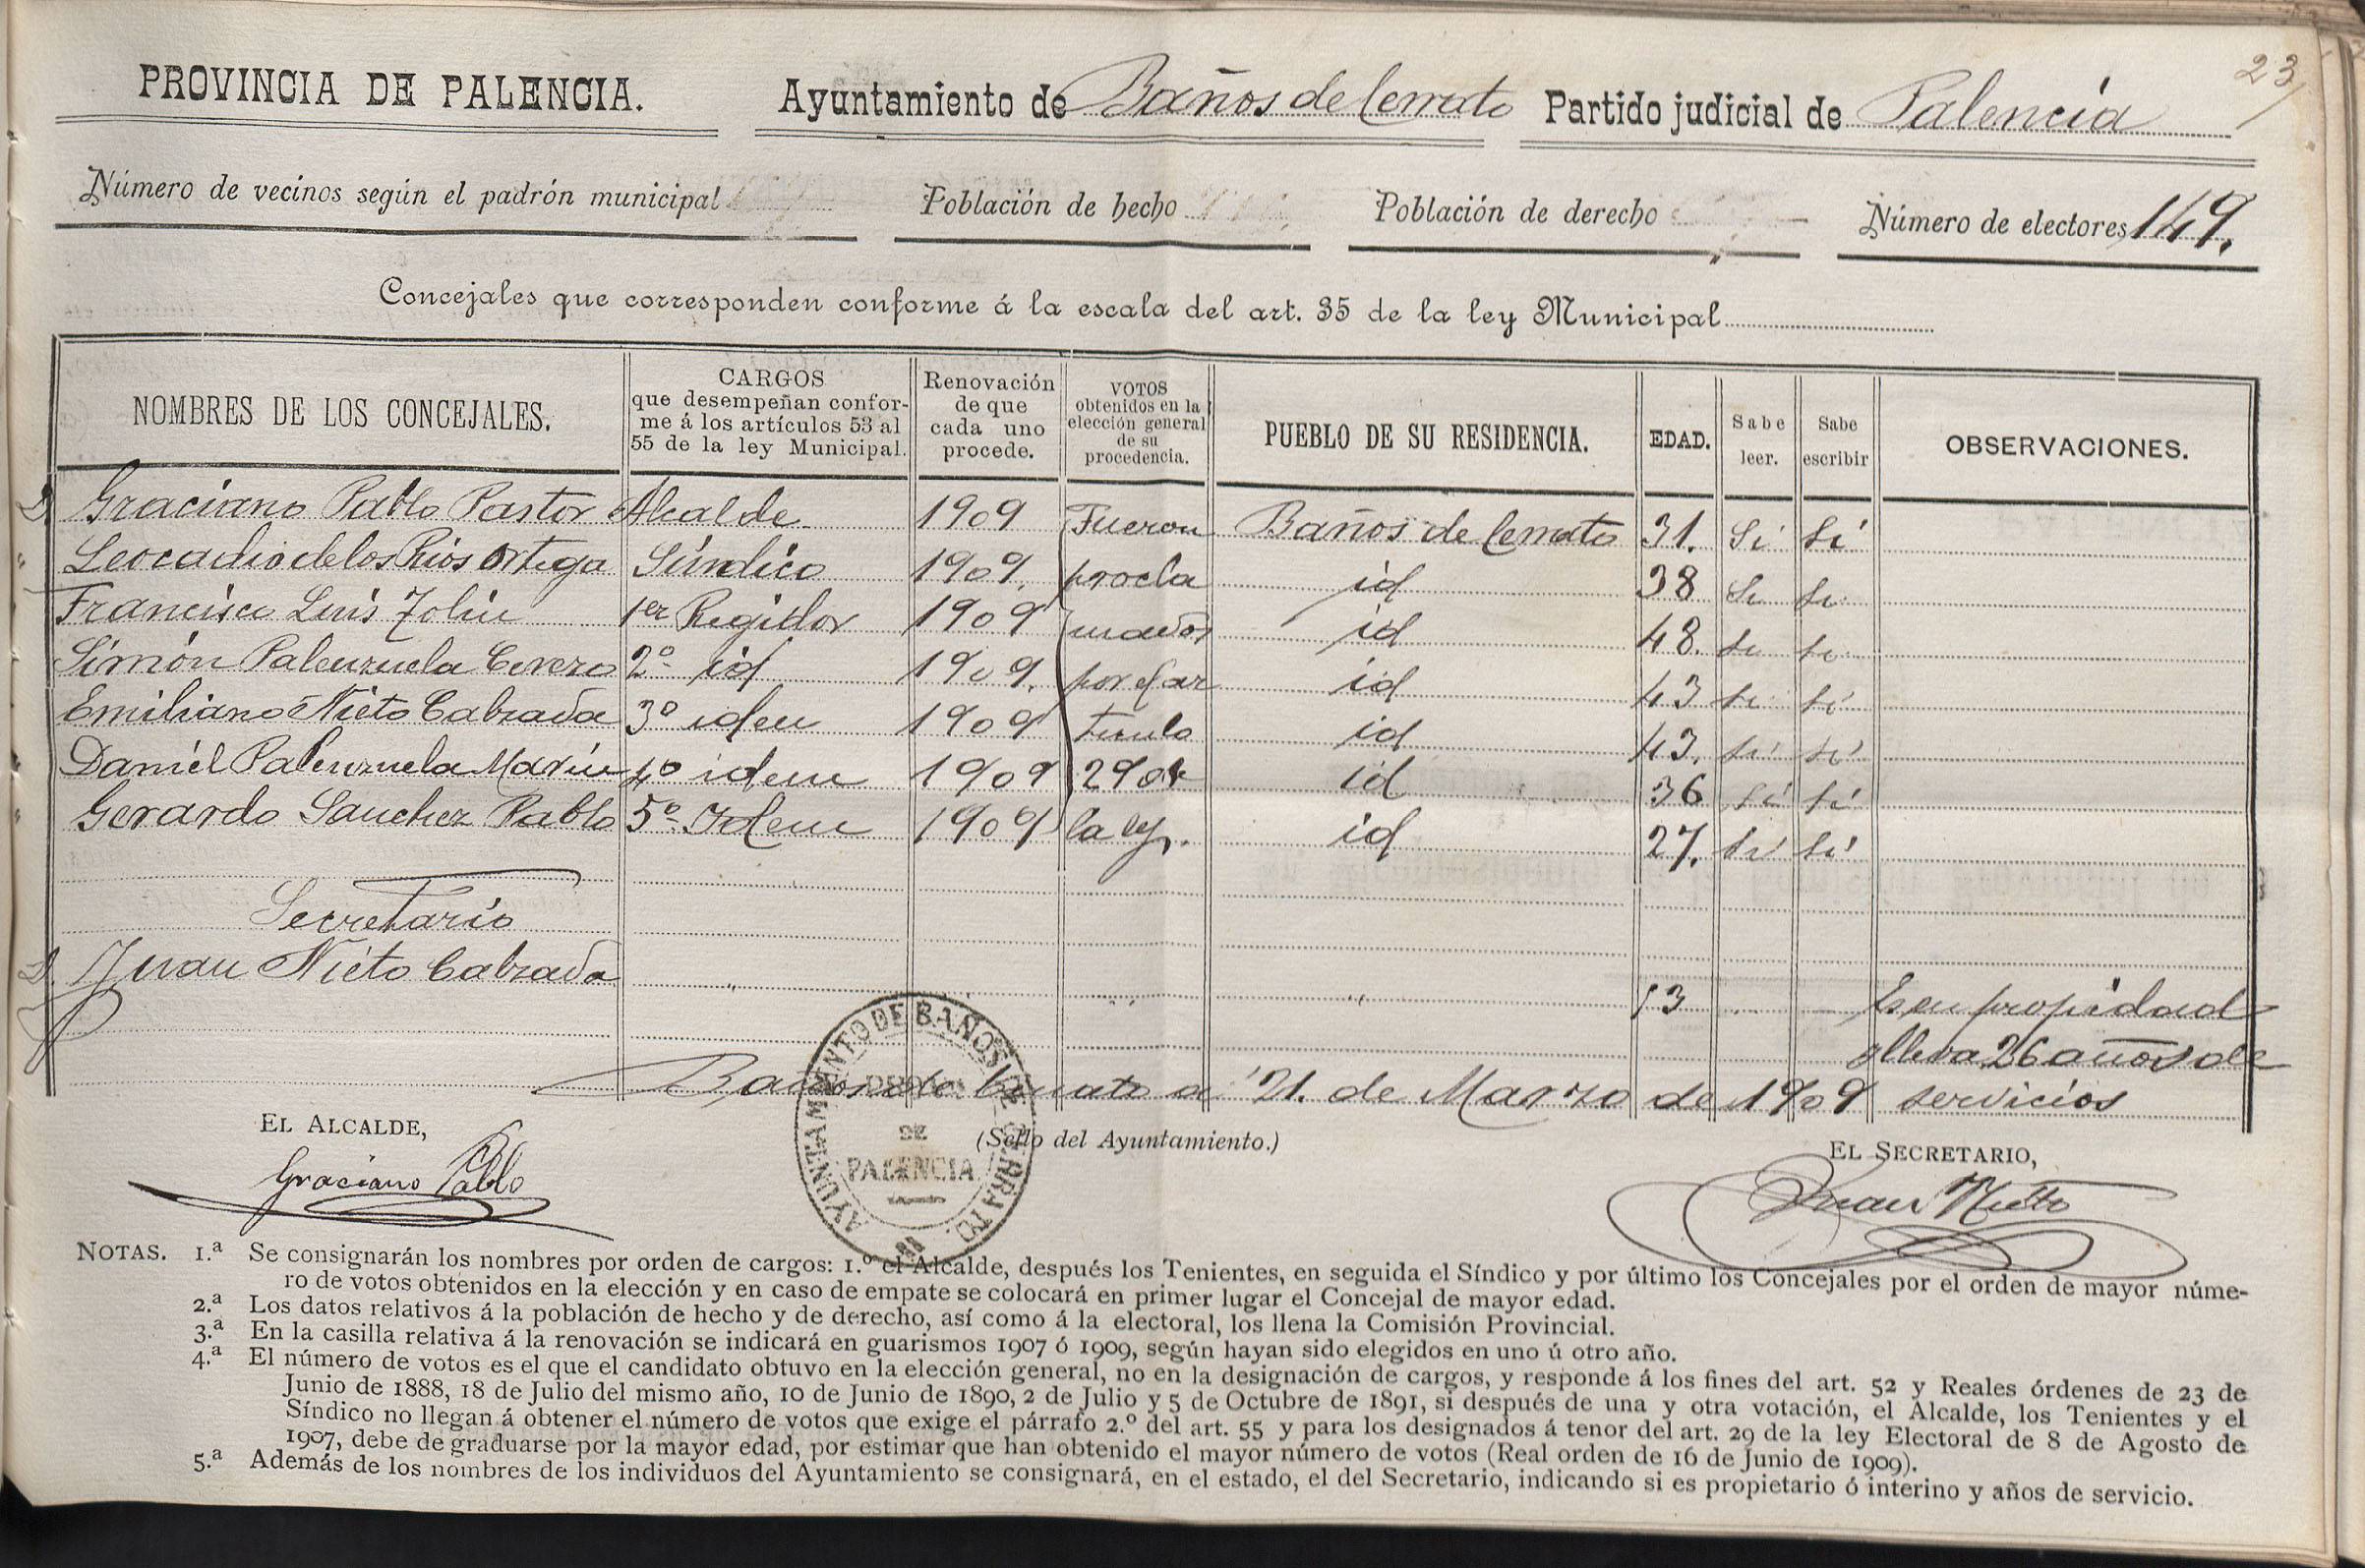 23
PROVINCIA DE PALENCIA. Ayuntamiento de Baños de Cerrato Partido judicial de Palencia
Número de vecinos según el padrón municipal Población de hecho Población de derecho Número de electores 149.
Concejales que corresponden conforme á la escala del art. 35 de la ley Municipal
NOMBRES DE LOS CONCEJALES.
CARGOS
que desempeñan confor-
me á los artículos 53 al
55 de la ley Municipal.
Renovación
de que
cada uno
procede.
VOTOS
obtenidos en la
elección general
de su
procedencia.
PUEBLO DE SU RESIDENCIA.
EDAD.
Sabe
leer.
Sabe
escribir
OBSERVACIONES.
D. Graciano Pablo Pastor Alcalde 1909 Fueron Baños de Cerrato 31. Sí Sí
" Leocadio de los Rios Ortega Síndico 1909. procla id 38 Si si
Francisco Luis Tolin 1er Regidor 1909 mados id 48. si si
Simón Palenzuela Cevero 2º id 1909. por el ar id 43 si sí
Emiliano Nieto Calzada 3º idem 1909 ticulo id 43. si sí
Daniél Palenzuela Marín 4º idem 1909 29 de id 36 sí sí
Gerardo Sanchez Pablo 5º Idem 1909 la ley. id 27. si sí
Secretario
D. Juan Nieto Calzada " " " 53 Es en propiedad
y lleva 26 años de
servicios
Baños de Cerrato a 21. de Marzo de 1909
EL ALCALDE,
Graciano Pablo
(Sello del Ayuntamiento.)
AYUNTAMIENTO DE BAÑOS DE CERRATO
DE
PALENCIA
EL SECRETARIO,
Juan Nieto
NOTAS. 1.ª Se consignarán los nombres por orden de cargos: 1.º el Alcalde, después los Tenientes, en seguida el Síndico y por último los Concejales por el orden de mayor núme-
ro de votos obtenidos en la elección y en caso de empate se colocará en primer lugar el Concejal de mayor edad.
2.ª Los datos relativos á la población de hecho y de derecho, así como á la electoral, los llena la Comisión Provincial.
3.ª En la casilla relativa á la renovación se indicará en guarismos 1907 ó 1909, según hayan sido elegidos en uno ú otro año.
4.ª El número de votos es el que el candidato obtuvo en la elección general, no en la designación de cargos, y responde á los fines del art. 52 y Reales órdenes de 23 de
Junio de 1888, 18 de Julio del mismo año, 10 de Junio de 1890, 2 de Julio y 5 de Octubre de 1891, si después de una y otra votación, el Alcalde, los Tenientes y el
Síndico no llegan á obtener el número de votos que exige el párrafo 2.º del art. 55 y para los designados á tenor del art. 29 de la ley Electoral de 8 de Agosto de
1907, debe de graduarse por la mayor edad, por estimar que han obtenido el mayor número de votos (Real orden de 16 de Junio de 1909).
5.ª Además de los nombres de los individuos del Ayuntamiento se consignará, en el estado, el del Secretario, indicando si es propietario ó interino y años de servicio.